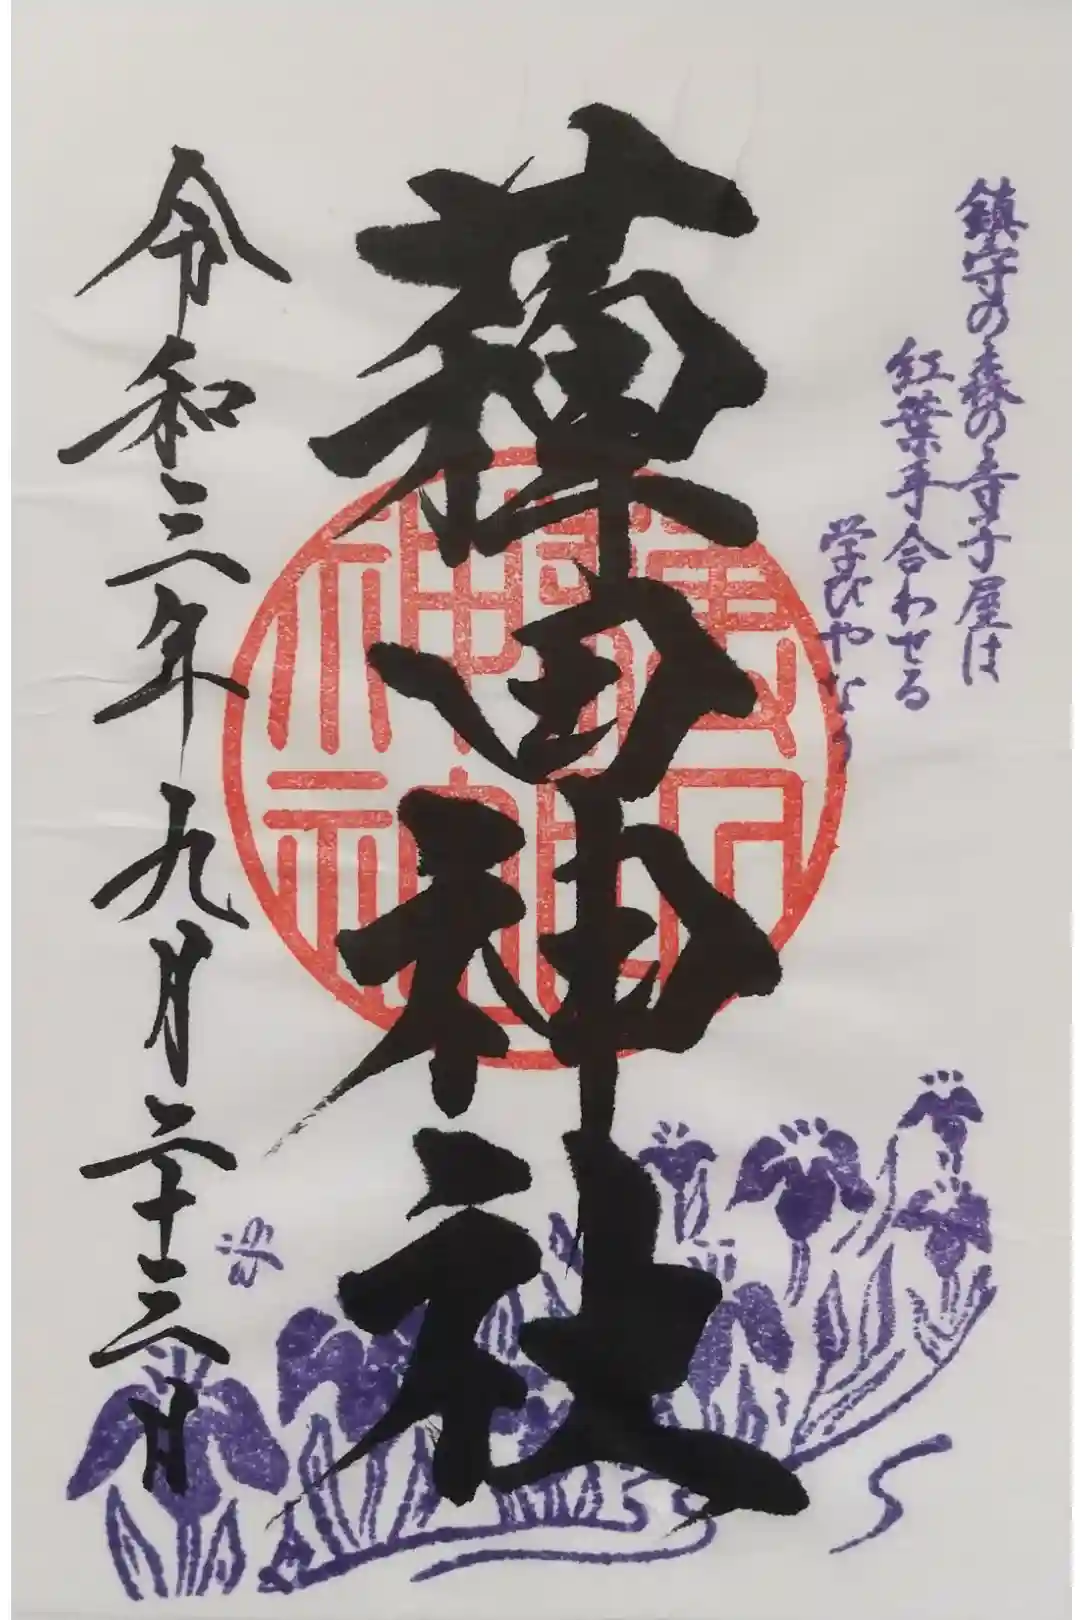 鎮守の森の寺子屋は
紅葉手合わせる
学びや
薭田神社
令和三年九月二十三日